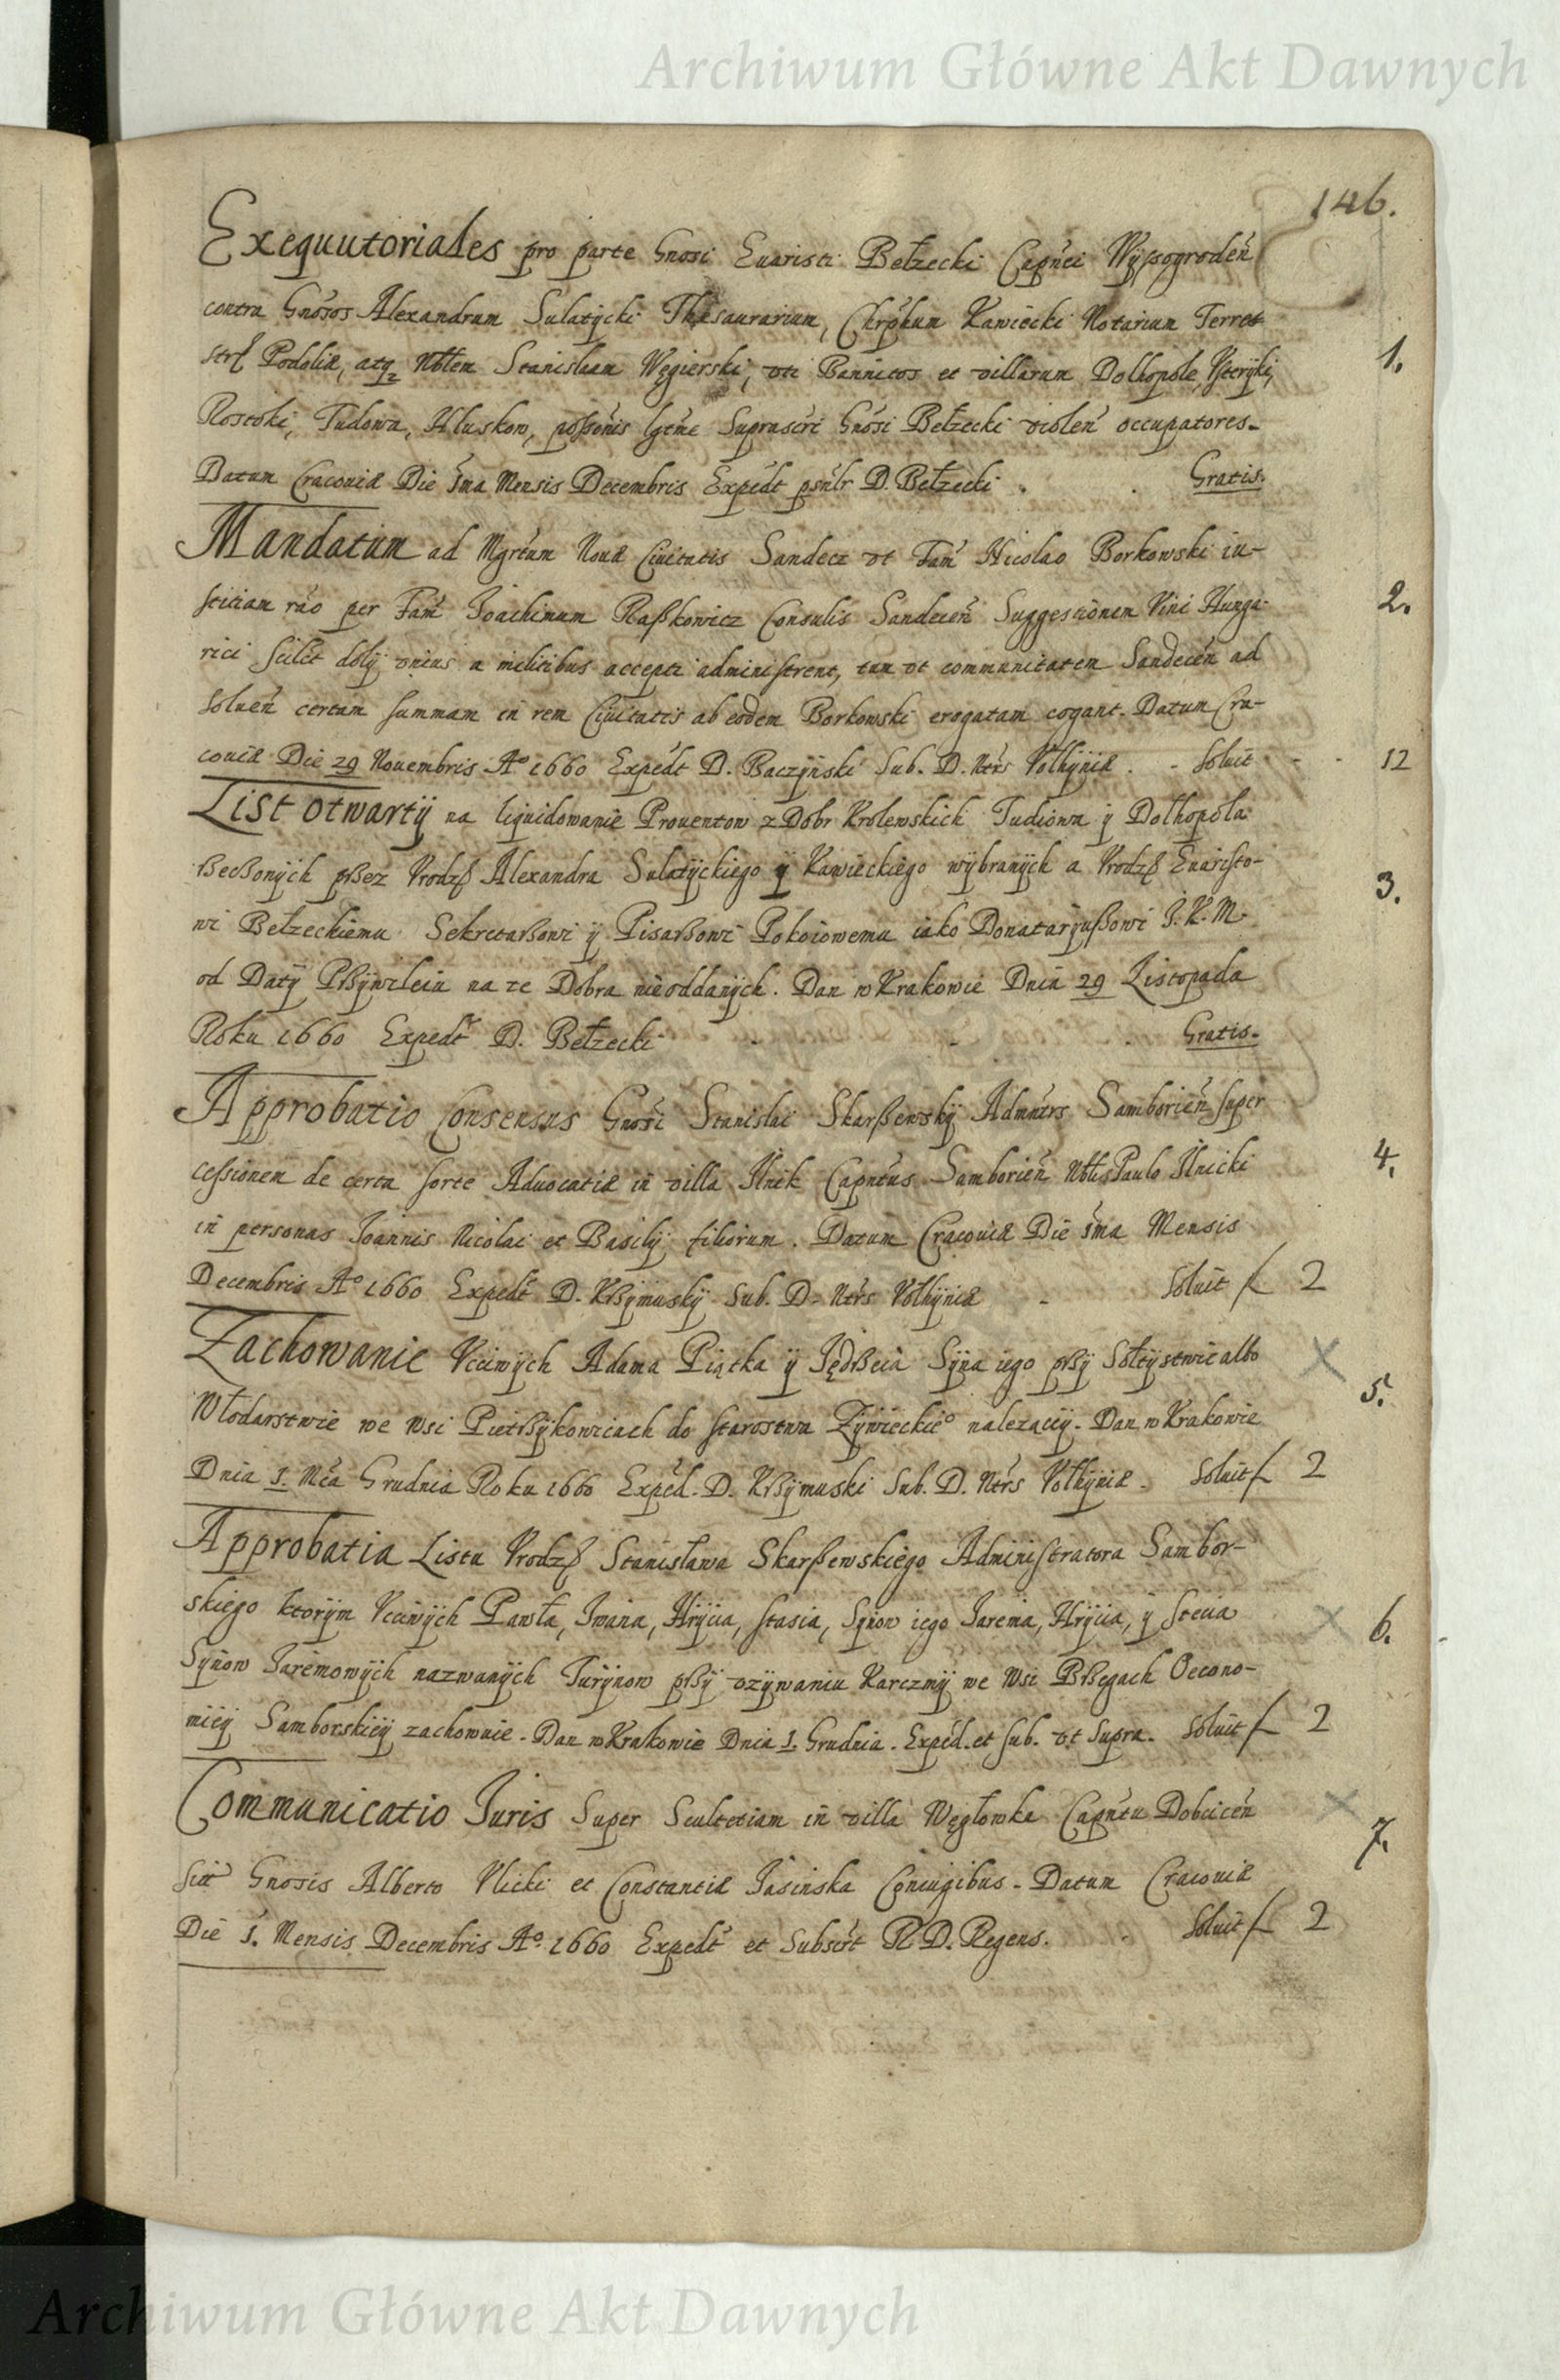 Archiwum Główne Akt Dawnych
146.
Exequutoriales pro parte Gnosi Euaristi Bełzecki Capnei Wyssogroden
contra Gnosos Alexandrum Sulatycki Thesaurarium, Chrphum Kawiecki Notarium Terres
strĘ Podoliæ, atq Nblem Stanislaum Węgierski, uti Bannitos et villarum Dolhopole, Vsteryki,
1.
Rostoki, Tudowa, Hluskow, possonis lgtme Suprascri Gnosi Bełzecki violen occupatores.
Datum Cracouiæ Die 1ma Mensis Decembris Expedt psnlr D. Bełzecki. Gratis.
Mandatum ad Mgrtum Nouæ Ciuitatis Sandecz ut Fam Nicolao Borkowski iu-
stitiam rao per Fam Joachimum Raszkowicz Consulis Sandecen Suggestionem Vini Hunga-
2.
rici scilet dolij unius a militibus accepti administrent, tum ut communitatem Sandecen ad
soluen certam summam in rem Ciuitatis ab eodem Borkowski erogatam cogant. Datum Cra-
couiæ Die 29 Nouembris A° 1660 Expedt D. Baczynski Sub. D. Ntrs Volhyniæ. Soluit 12
List otwarty na liquidowanie Prouentow z Dobr Krolewskich Tudiowa y Dolhopola
przez Vrodz Alexandra Sulatyckiego y Kawieckiego wybranych a Vrodz Euaristo-
3.
wi Bełzeckiemu Sekretarzowi y Pisarzowi Pokoiowemu iako Donataryuszowi J.K.M.
od Daty Przywileiu na te Dobra nieoddanych. Dan w Krakowie Dnia 29 Listopada
Roku 1660 Expedt D. Bełzecki Gratis.
Approbatio Consensus Gnosi Stanislai Skarszewsky Admntrs Samborien super
4.
cessionem de certa sorte Aduocatiæ in villa Ilnik Capntus Samborien Nbli Paulo Ilnicki
in personas Joannis Nicolai et Basilij filiorum. Datum Cracouiæ Die 1ma Mensis
Decembris A° 1660 Expedt D. Krzymusky Sub. D. Ntrs Volhyniæ Soluit f 2
Zachowanie Vcciwych Adama Piątka y Jędrzeia Syna iego przy Sołtystwie albo
5.
Włodarstwie we Wsi Pietrzykowicach do Starostwa Zywieckie° nalezacey. Dan w Krakowie
Dnia 1. Mca Grudnia Roku 1660 Exped. D. Krzymuski Sub. D. Ntrs Volhyniæ. Soluit f 2
Approbatia Listu Vrodz Stanisława Skarszewskiego Administratora Sambor-
skiego ktorym Vcciwych Pawła, Iwana, Hrycia, Stasia, Synow iego Jarema, Hrycia, y Stecia
6.
Synow Jaremowych nazwanych Turynow przy vzywaniu Karczmy we Wsi Brzegach Oecono-
miey Samborskiey zachowuie. Dan w Krakowie Dnia 1. Grudnia. Exped. et sub. ut Supra. Soluit f 2
Communicatio Juris Super Scultetiam in villa Węglowka Capntu Dobcicen
7.
sit Gnosis Alberto Vlicki et Constantiæ Jasinska Coniugibus. Datum Cracouiæ
Die 1. Mensis Decembris A° 1660 Expedt et Subscrt R.D. Regens. Soluit f 2
Archiwum Główne Akt Dawnych